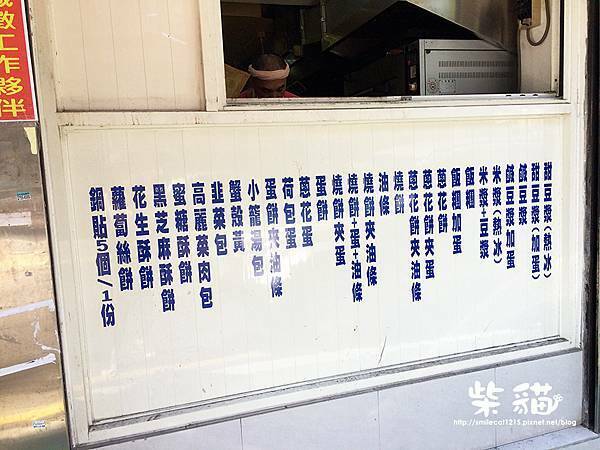 誠徵工作夥伴
甜豆漿(熱冰)
甜豆漿(加蛋)
鹹豆漿
鹹豆漿加蛋
米漿(熱冰)
米漿+豆漿
飯糰
飯糰加蛋
蔥花餅
蔥花餅夾蛋
蔥花餅夾油條
燒餅
油條
燒餅夾油條
燒餅+蛋+油條
燒餅夾蛋
蛋餅
蔥花蛋
荷包蛋
蛋餅夾油條
小籠湯包
蟹殼黃
韭菜包
高麗菜肉包
蜜糖酥餅
黑芝麻酥餅
花生酥餅
蘿蔔絲餅
鍋貼5個/1份
柴貓
http://smilecat1215.pixnet.net/blog